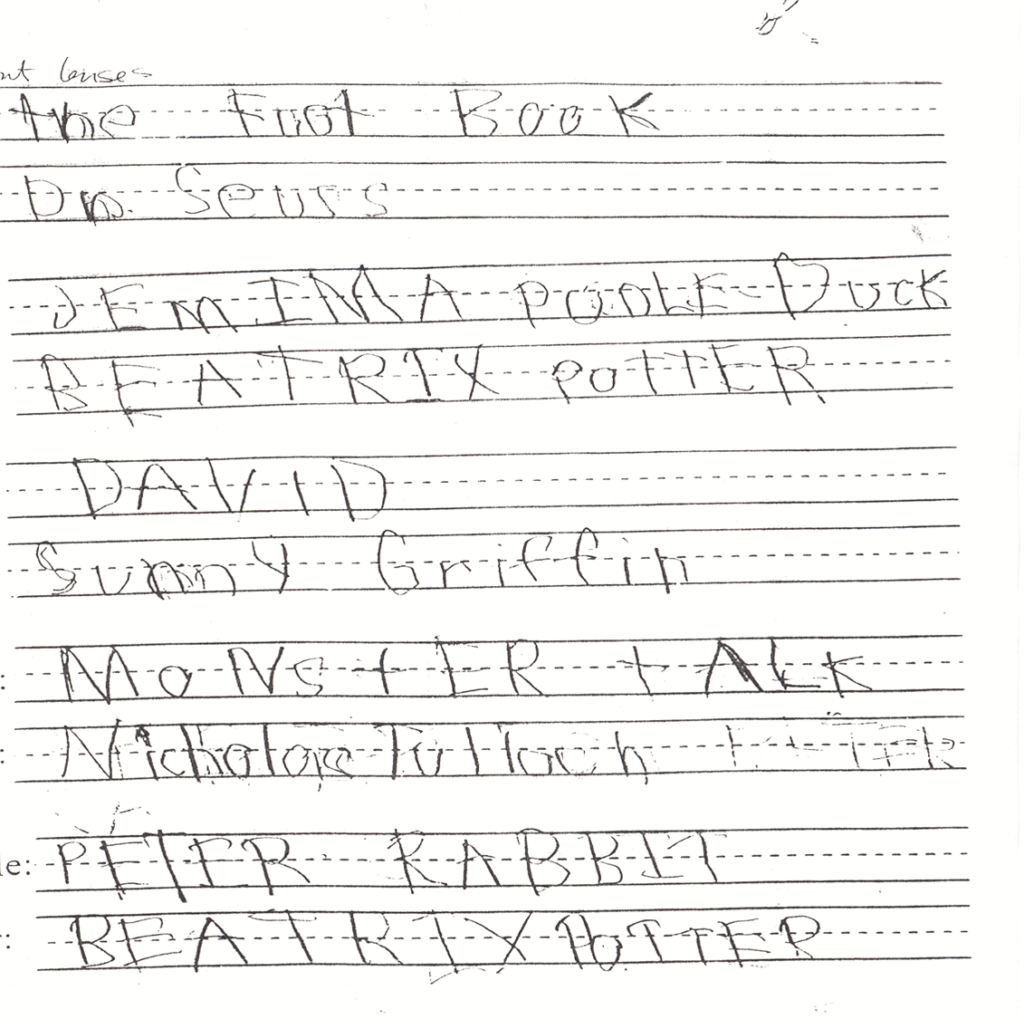 lenses
the Foot Book
Dr. Seuss
JEmIMA PooLE-Duck
BEATRIX PoTTER
DAVID
Sunny Griffin
MoNstER tALk
Nicholas Tulloch
le: PETER RABBIT
: BEATRIX PoTTER